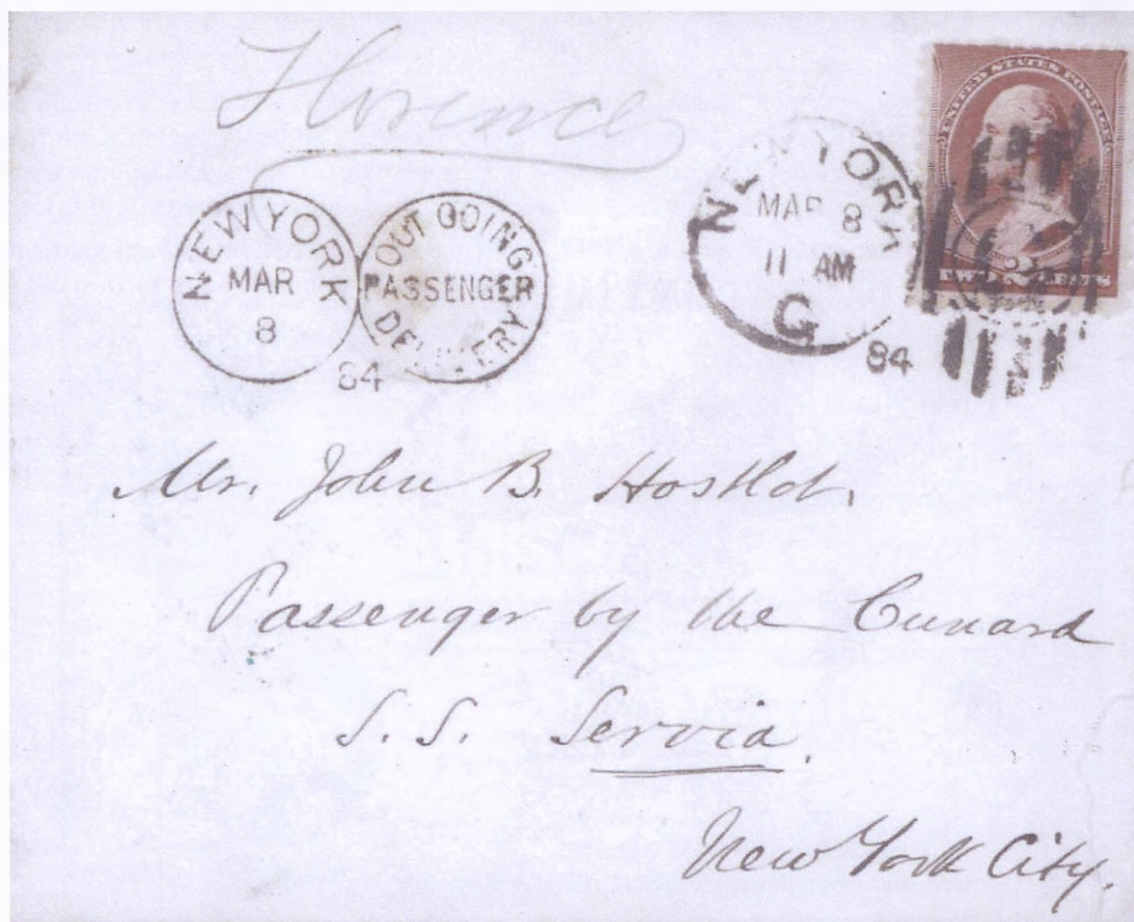 Florence
NEW YORK
MAR
8
84
OUT GOING
PASSENGER
DELIVERY
NEW YORK
MAR 8
11 AM
G
84
UNITED STATES POSTAGE
2
TWO CENTS
Mr. John B.
Passenger by the Cunard
S. S. Servia.
New York City.